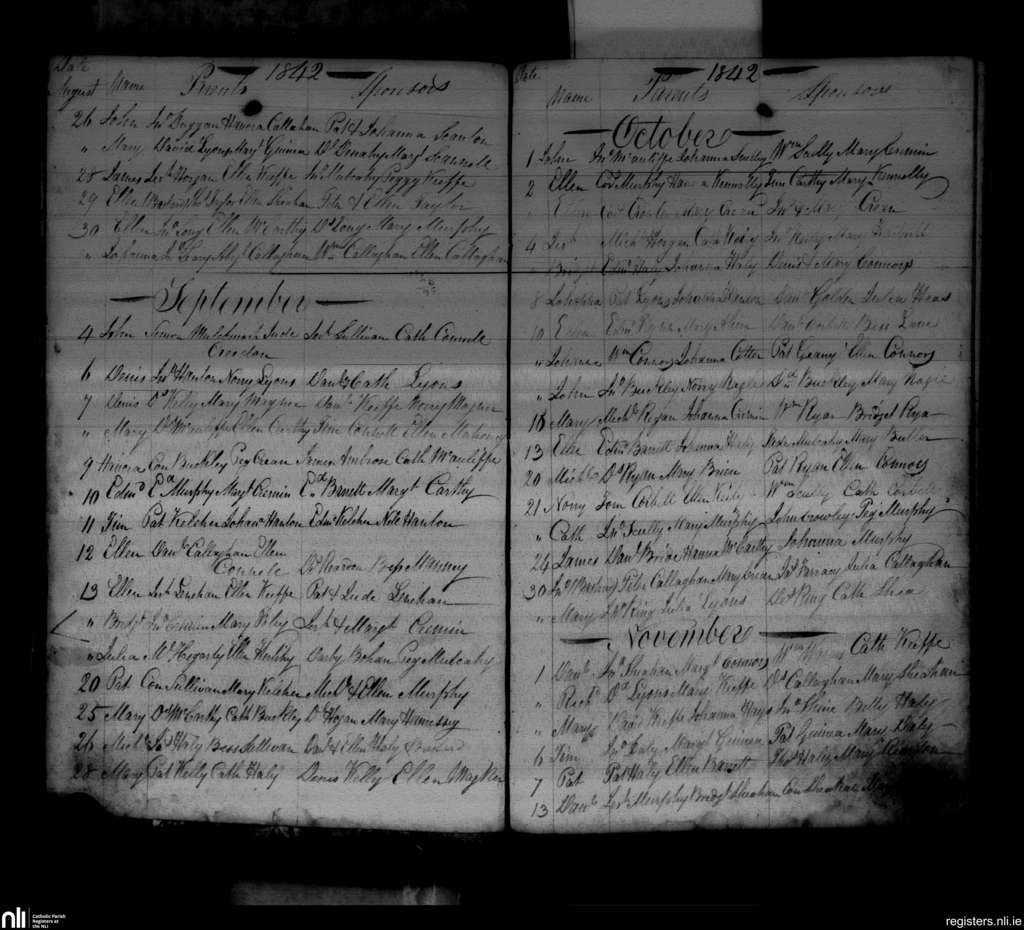 Date
1842
August Name Parents Sponsors
26 John Jno Duggan Hanora Callahan Pat & Johanna Scanlon
" Mary David Lyons Margt Guinea Ds Denahy Margt Scannell
28 James Jerh Horgan Ellen Keeffe Jno Mulcahy Peggy Keeffe
29 Ellen Taylor Ellen Sheehan Peter & Ellen Taylor
30 Ellen Jno Long Ellen McCarthy Dd Long Mary Murphy
" Johanna Js Geary Abgl Callaghan Wm Callaghan Ellen Callaghan
September
4 John Simon Jude Jerh Sullivan Cath Connole
Creedan
6 Denis Jno Hanlon Norry Lyons Danl & Cath Lyons
7 Denis Ds Kelly Mary Wagner Danl Keeffe Norry Wagner
" Mary Ds McAuliffe Ellen Carthy Tim Corbett Ellen Mahony
9 Hanora Con Buckley Peg Crean James Ambrose Cath McAuliffe
10 Edmd Ed Murphy Margt Cremin Ed Barrett Margt Carthy
11 Tim Pat Kelcher Johana Hanlon Edm Kelcher Nelle Hanlon
12 Ellen Danl Callaghan Ellen
Connole Ds Reardon Bess Manney
13 Ellen Jerh Linehan Ellen Keeffe Pat & Jude Linehan
" Bridgt Jno Cremin Mary Riely Jerh & Margt Cremin
" Julia Ml Hegarty Ellen Herlihy Darby Bohan Peg Mulcahy
20 Pat Con Sullivan Mary Kelcher Michl & Ellen Murphy
25 Mary Ds McCarthy Cath Buckley Ds Hogan Mary Hennessy
26 Michl Jas Haly Bess Sullivan Danl & Ellen Haly
28 Mary Pat Reily Cath Haly Denis Kelly Ellen Wagner
Date
1842
Name Parents Sponsors
October
1 John Jno McAuliffe Johanna Scully Wm Scully Mary Cremin
2 Ellen Cors Murphy Hana Kennelly Tim Carthy Mary Kennelly
" Ellen Con Crowley Mary Creen Jno & Margt Creen
4 Jerh Michl Horgan Cath Reidy Jno Mary
" Bridgt Edmd Haly Johanna Haly David & Mary Connors
8 Johanna Pat Lyons Johanna Hanlon Danl Golden Julia
10 Ellen Edmd Mary Danl Corbett Bess Lane
" Johana Wm Connors Johanna Cotter Pat Geany Ellen Connors
" John Jno Buckley Norry Magie Dd Buckley Mary Magie
10 Mary Michl Regan Johanna Cremin Wm Ryan Bridget Ryan
13 Ellen Edmd Barrett Johanna Haly Mulcahy Mary Butler
20 Michl Dd Ryan Mary Brien Pat Ryan Ellen Connors
21 Norry Tom Corbett Ellen Reily Wm Scully Cath Corbett
" Cath Jno Scully Mary Murphy John Crowley Peg Murphy
24 James Danl Bride Hanna McCarthy Johanna Murphy
30 Peter Callaghan Mary Crean Jas Farrany Julia Callaghan
" Mary Jno King Julia Lyons Ds King Cath Shea
November
1 Danl Jno Sheehan Margt Connors Wm Cath Keeffe
" Richd Dd Lyons Mary Keeffe Ds Callaghan Mary Sheehan
" Mary David Keeffe Johanna Hays Jno Shine Betty Haly
6 Tim Jno Daly Margt Guinea Pat Guinea Mary Daly
7 Pat Pat Haly Ellen Barrett Thos Haly Mary
13 Danl Jerh Murphy Bridgt Sheehan Con Sheehan Mary
nli Catholic Parish Registers at the NLI
registers.nli.ie